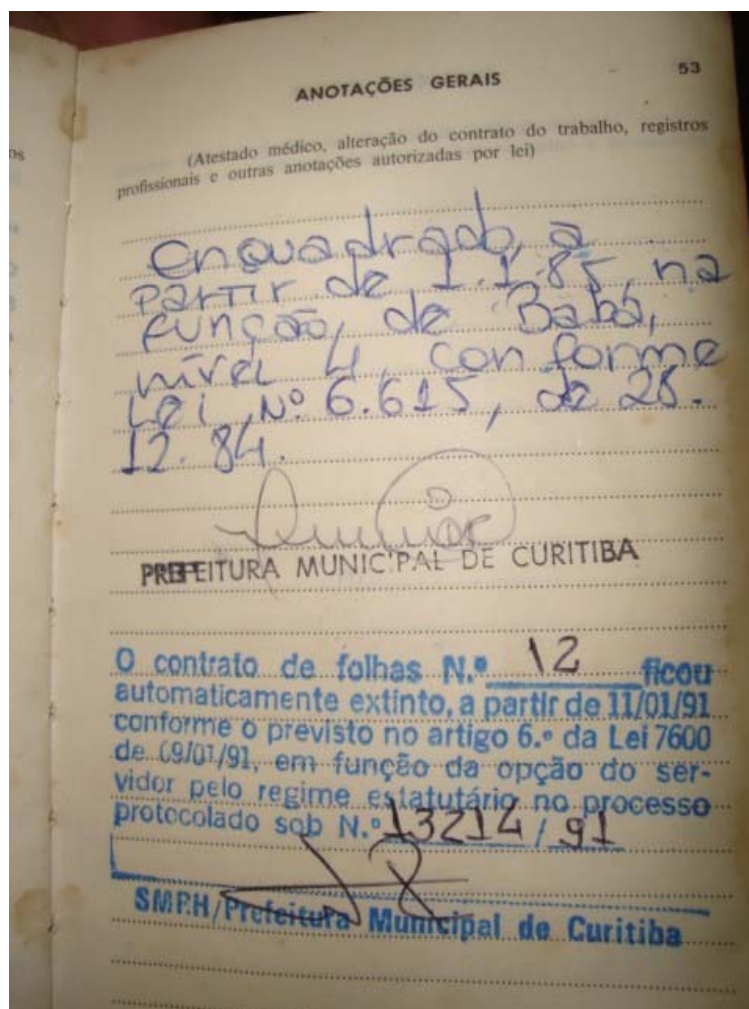 os
ANOTAÇÕES GERAIS
53
(Atestado médico, alteração do contrato do trabalho, registros
profissionais e outras anotações autorizadas por lei)
enquadrado, a
partir de 1.1.85, na
função, de Babá,
nível 4, conforme
Lei, Nº 6.615, de 28.
12.84.
PREFEITURA MUNICIPAL DE CURITIBA
O contrato de folhas N.º 12 ficou
automaticamente extinto, a partir de 11/01/91
conforme o previsto no artigo 6.º da Lei 7600
de 09/01/91, em função da opção do ser-
vidor pelo regime estatutário no processo
protocolado sob N.º 13214 / 91
SMRH/Prefeitura Municipal de Curitiba